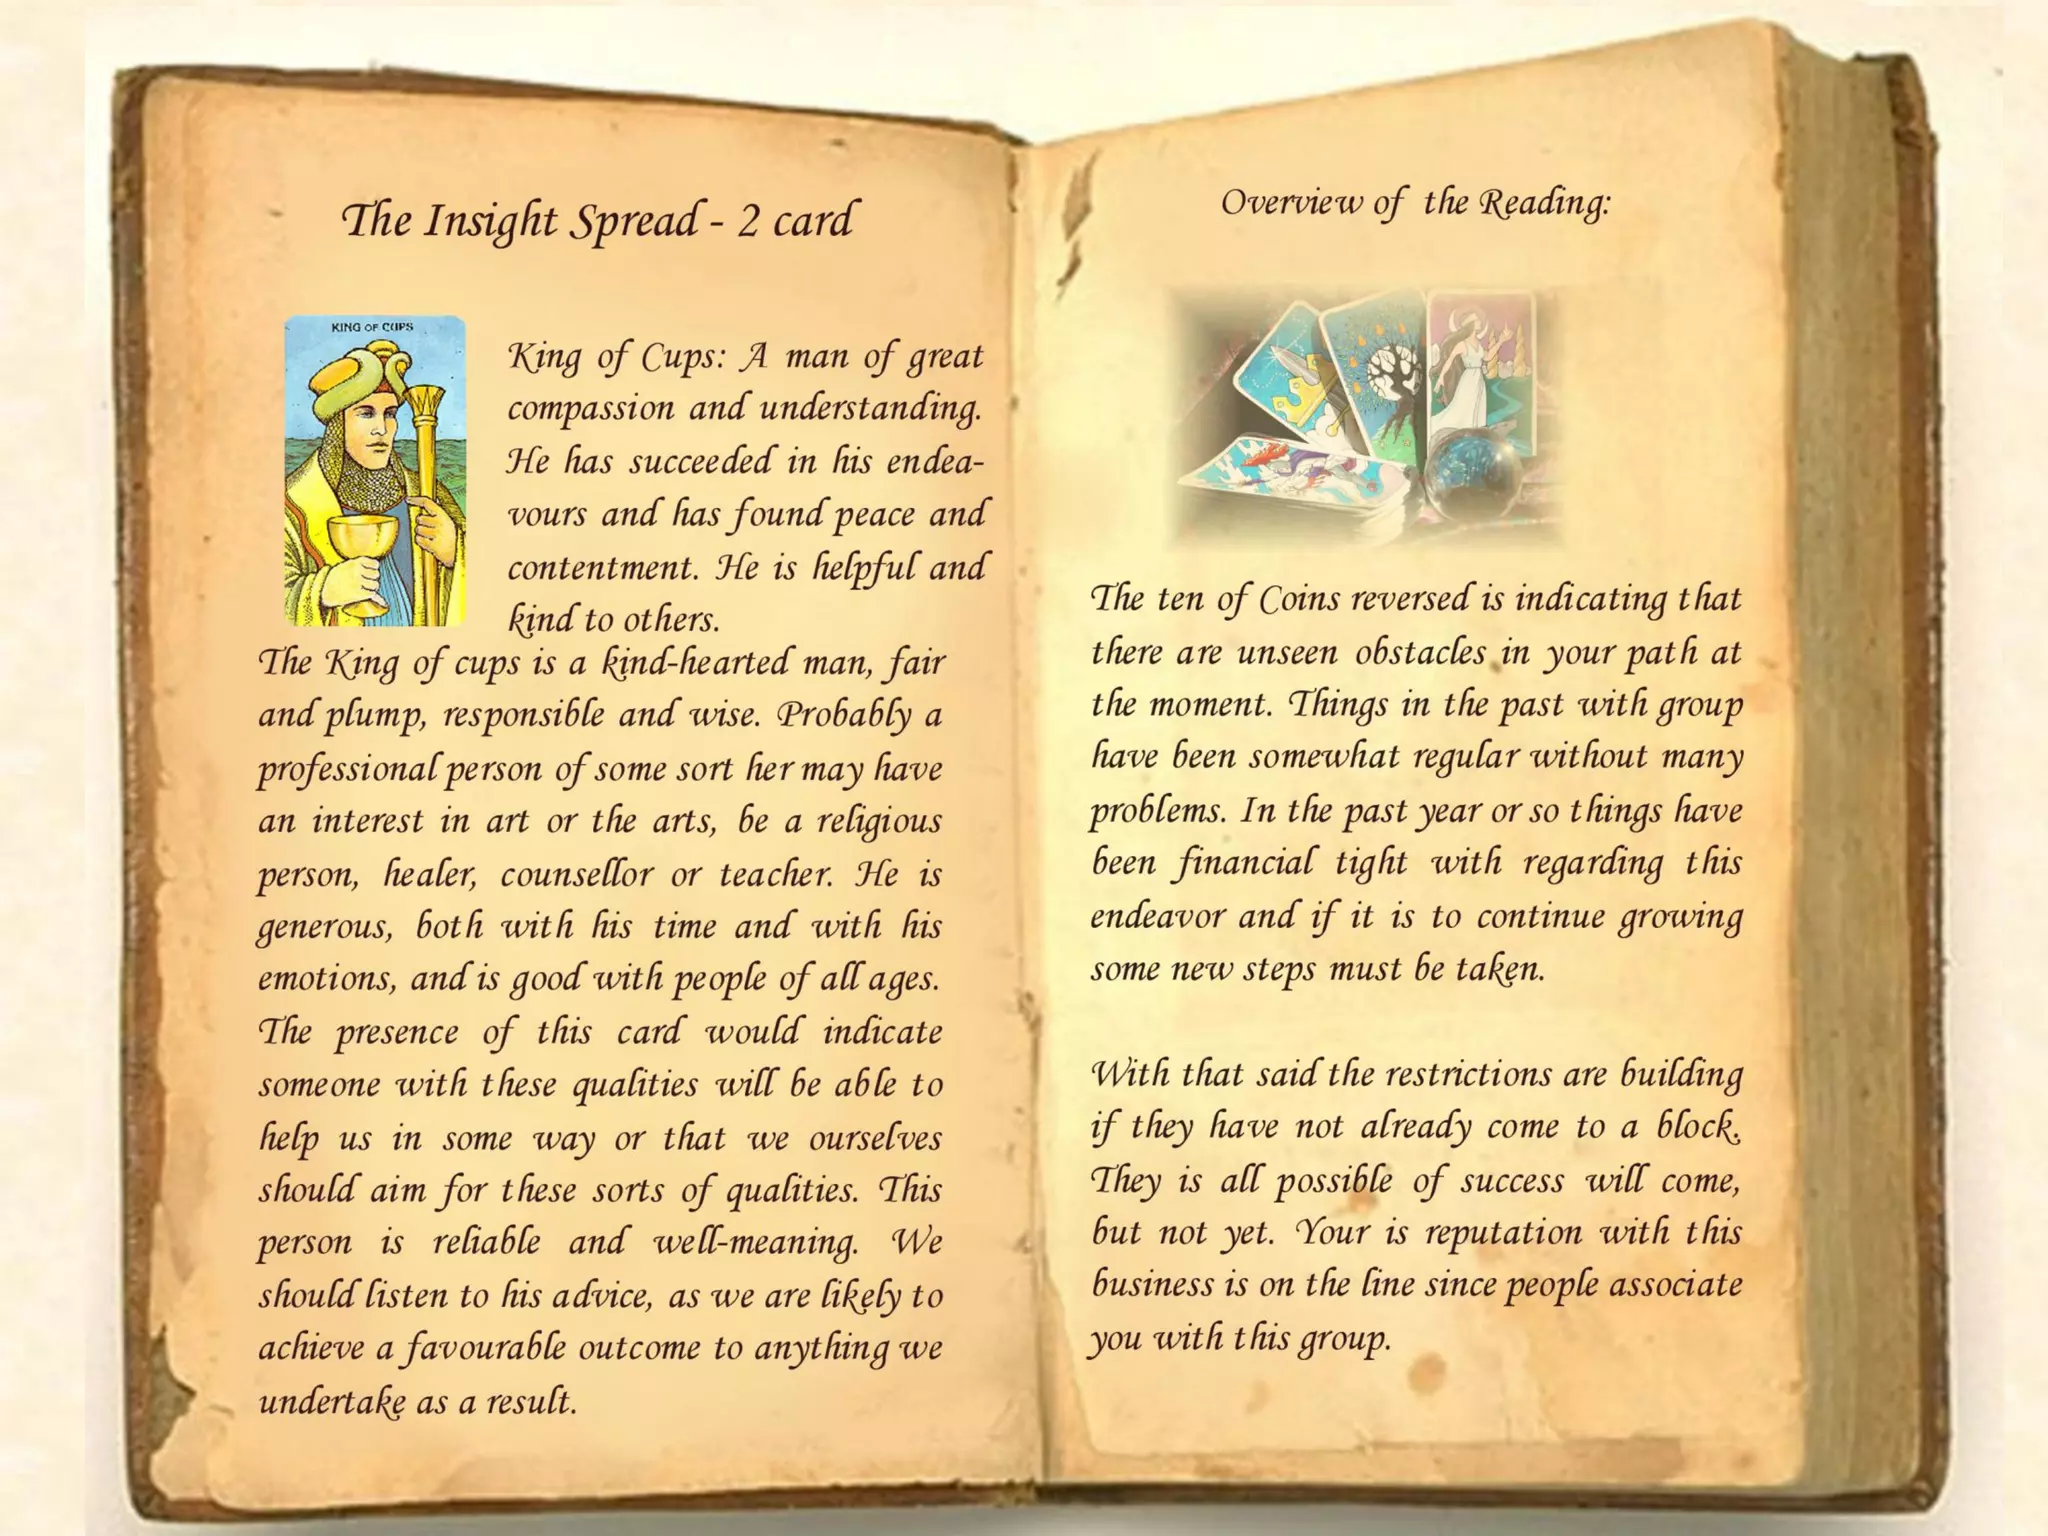 The Insight Spread - 2 card
KING OF CUPS
King of Cups: A man of great
compassion and understanding.
He has succeeded in his endea-
vours and has found peace and
contentment. He is helpful and
kind to others.
The King of cups is a kind-hearted man, fair
and plump, responsible and wise. Probably a
professional person of some sort her may have
an interest in art or the arts, be a religious
person, healer, counsellor or teacher. He is
generous, both with his time and with his
emotions, and is good with people of all ages.
The presence of this card would indicate
someone with these qualities will be able to
help us in some way or that we ourselves
should aim for these sorts of qualities. This
person is reliable and well-meaning. We
should listen to his advice, as we are likely to
achieve a favourable outcome to anything we
undertake as a result.
Overview of the Reading:
The ten of Coins reversed is indicating that
there are unseen obstacles in your path at
the moment. Things in the past with group
have been somewhat regular without many
problems. In the past year or so things have
been financial tight with regarding this
endeavor and if it is to continue growing
some new steps must be taken.
With that said the restrictions are building
if they have not already come to a block.
They is all possible of success will come,
but not yet. Your is reputation with this
business is on the line since people associate
you with this group.